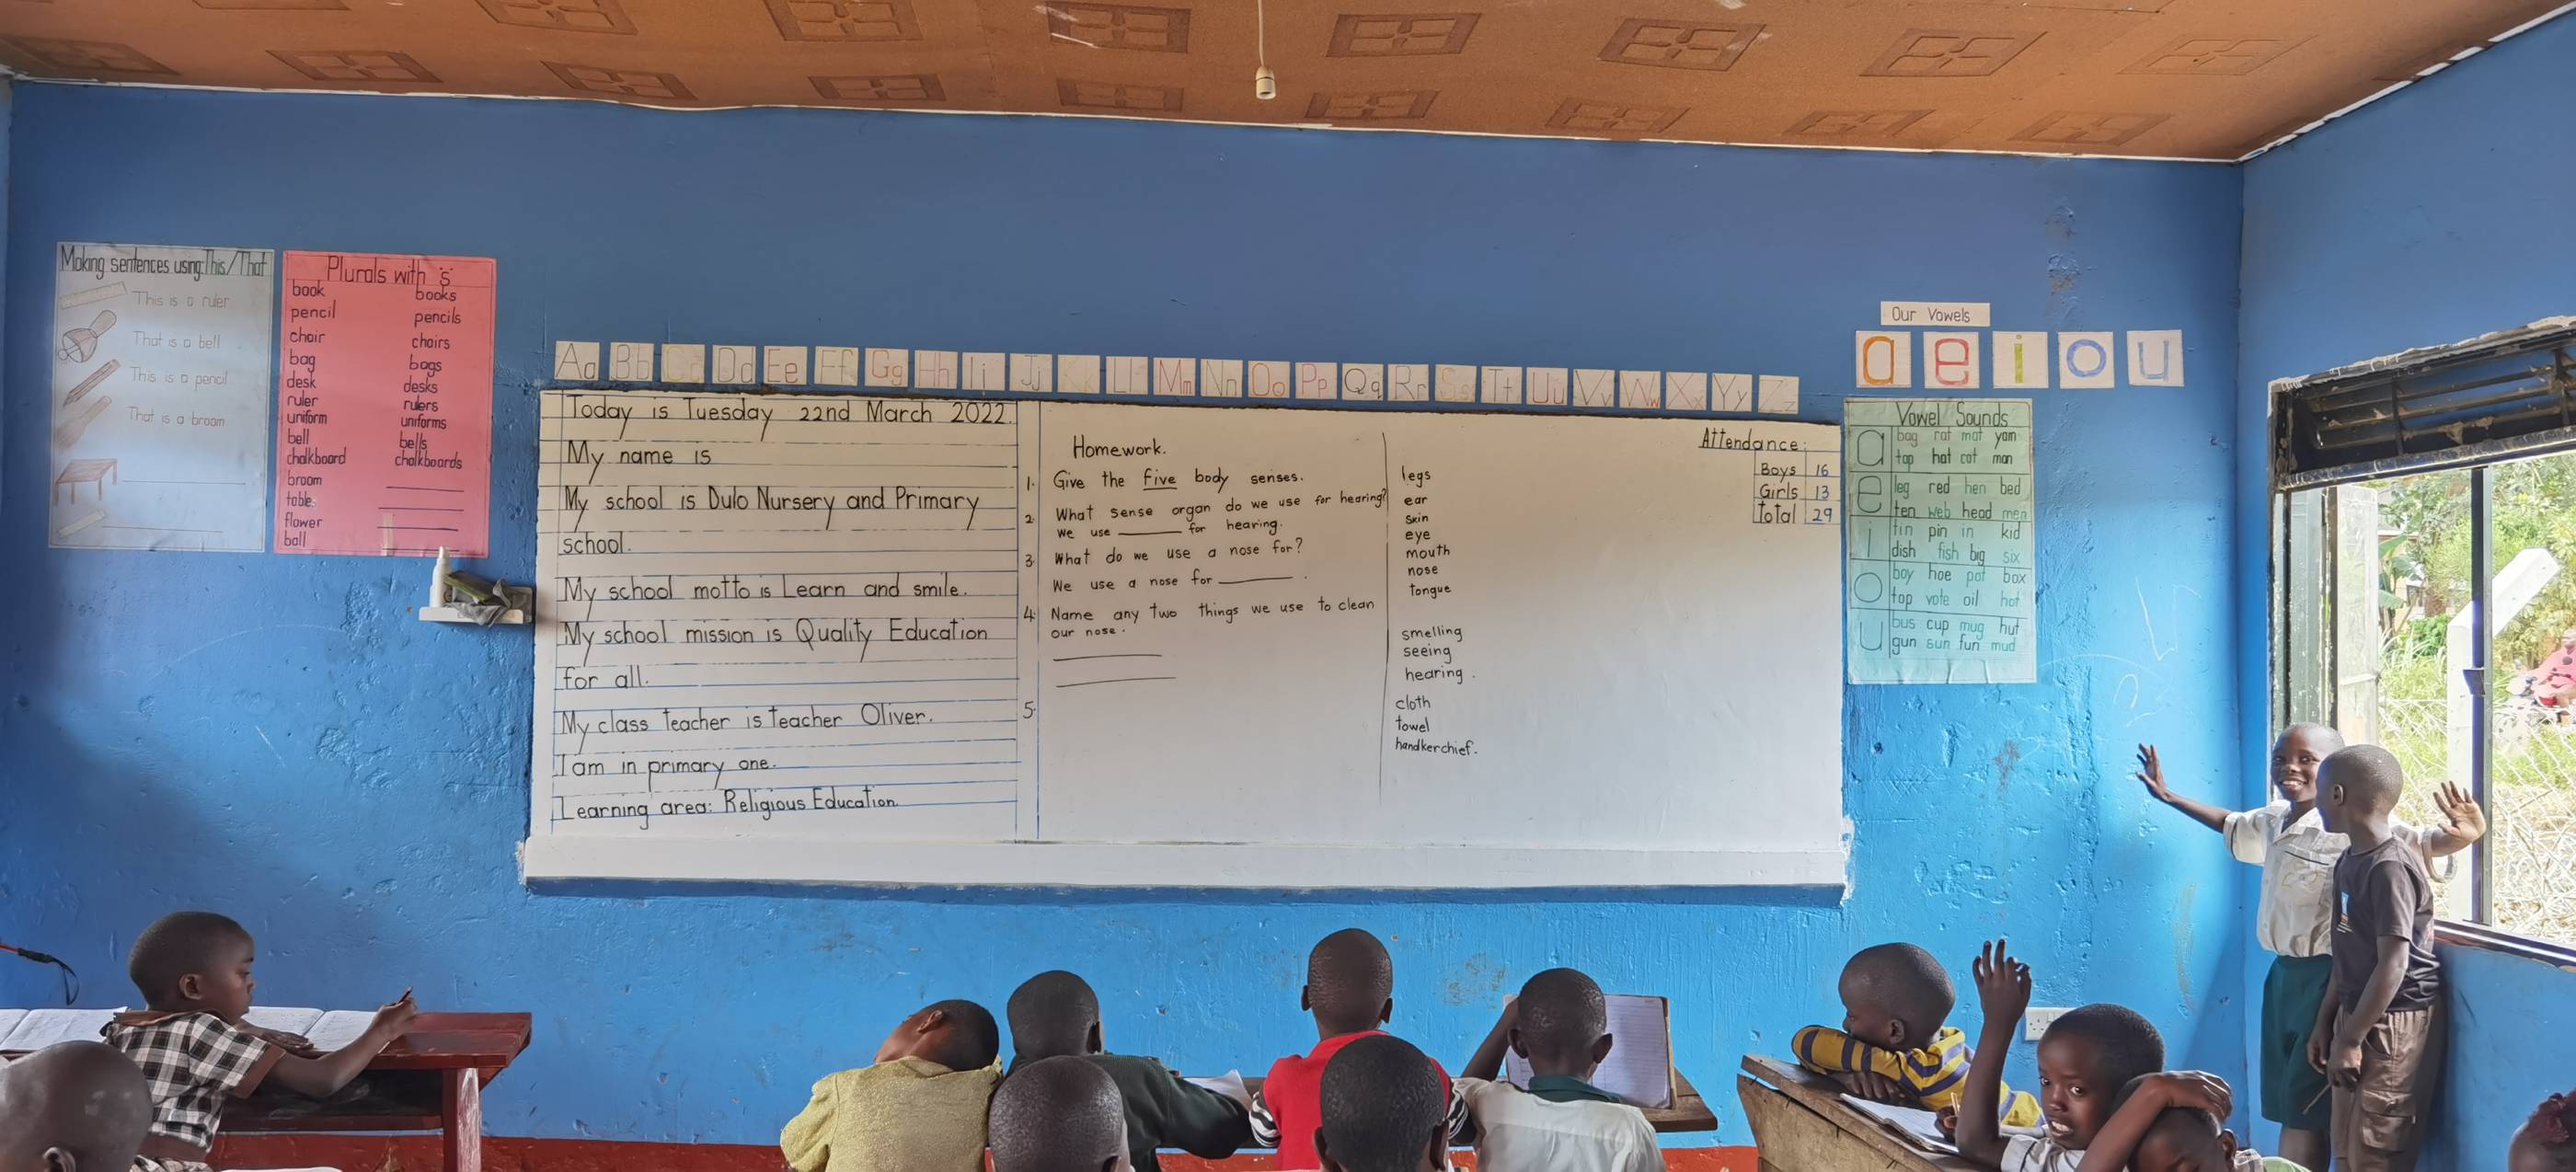 Making sentences using: This/That
This is a ruler
That is a bell
This is a pencil
That is a broom
Plurals with 's'
book books
pencil pencils
chair chairs
bag bags
desk desks
ruler rulers
uniform uniforms
bell bells
chalkboard chalkboards
broom
table
flower
ball
Aa Bb Cc Dd Ee Ff Gg Hh Ii Jj Kk Ll Mm Nn Oo Pp Qq Rr Ss Tt Uu Vv Ww Xx Yy Zz
Today is Tuesday 22nd March 2022.
My name is
My school is Dulo Nursery and Primary
school.
My school motto is Learn and smile.
My school mission is Quality Education
for all.
My class teacher is teacher Oliver.
I am in primary one.
Learning area: Religious Education
Homework.
1. Give the five body senses.
2. What sense organ do we use for hearing?
We use ______ for hearing.
3. What do we use a nose for?
We use a nose for ______.
4. Name any two things we use to clean
our nose.
5.
legs
ear
skin
eye
mouth
nose
tongue
smelling
seeing
hearing.
cloth
towel
handkerchief.
Attendance:
Boys 16
Girls 13
Total 29
Our Vowels
a e i o u
Vowel Sounds
a bag rat mat yam
tap hat cat man
e leg red hen bed
ten web head men
i tin pin in kid
dish fish big six
o boy hoe pot box
top vote oil hot
u bus cup mug hut
gun sun fun mud